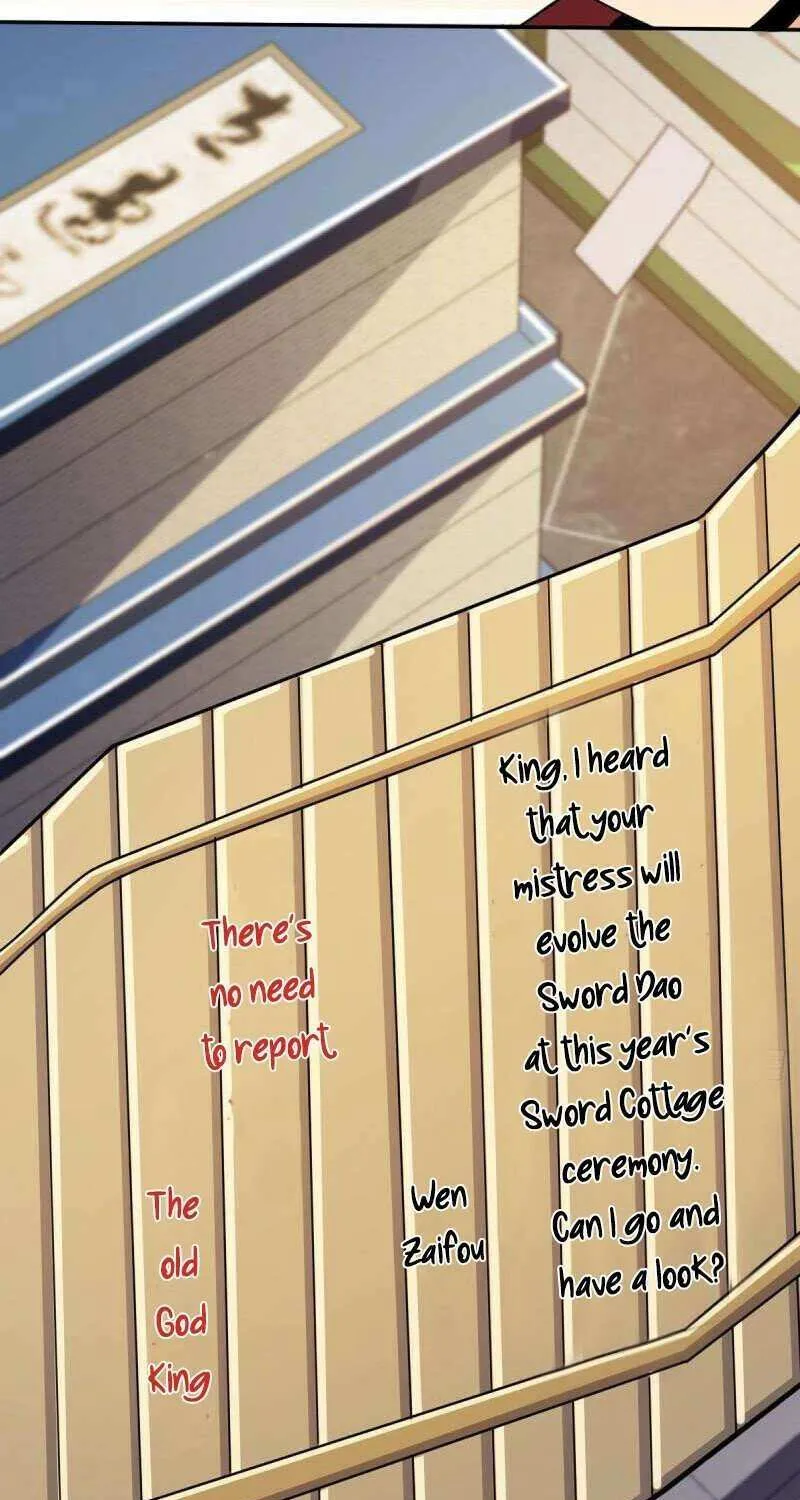 King, I heard
that your
mistress will
evolve the
Sword Dao
at this year's
Sword Cottage
ceremony.
Can I go and
have a look?
Wen
Zaifou
There's
no need
to report
The
old
God
King